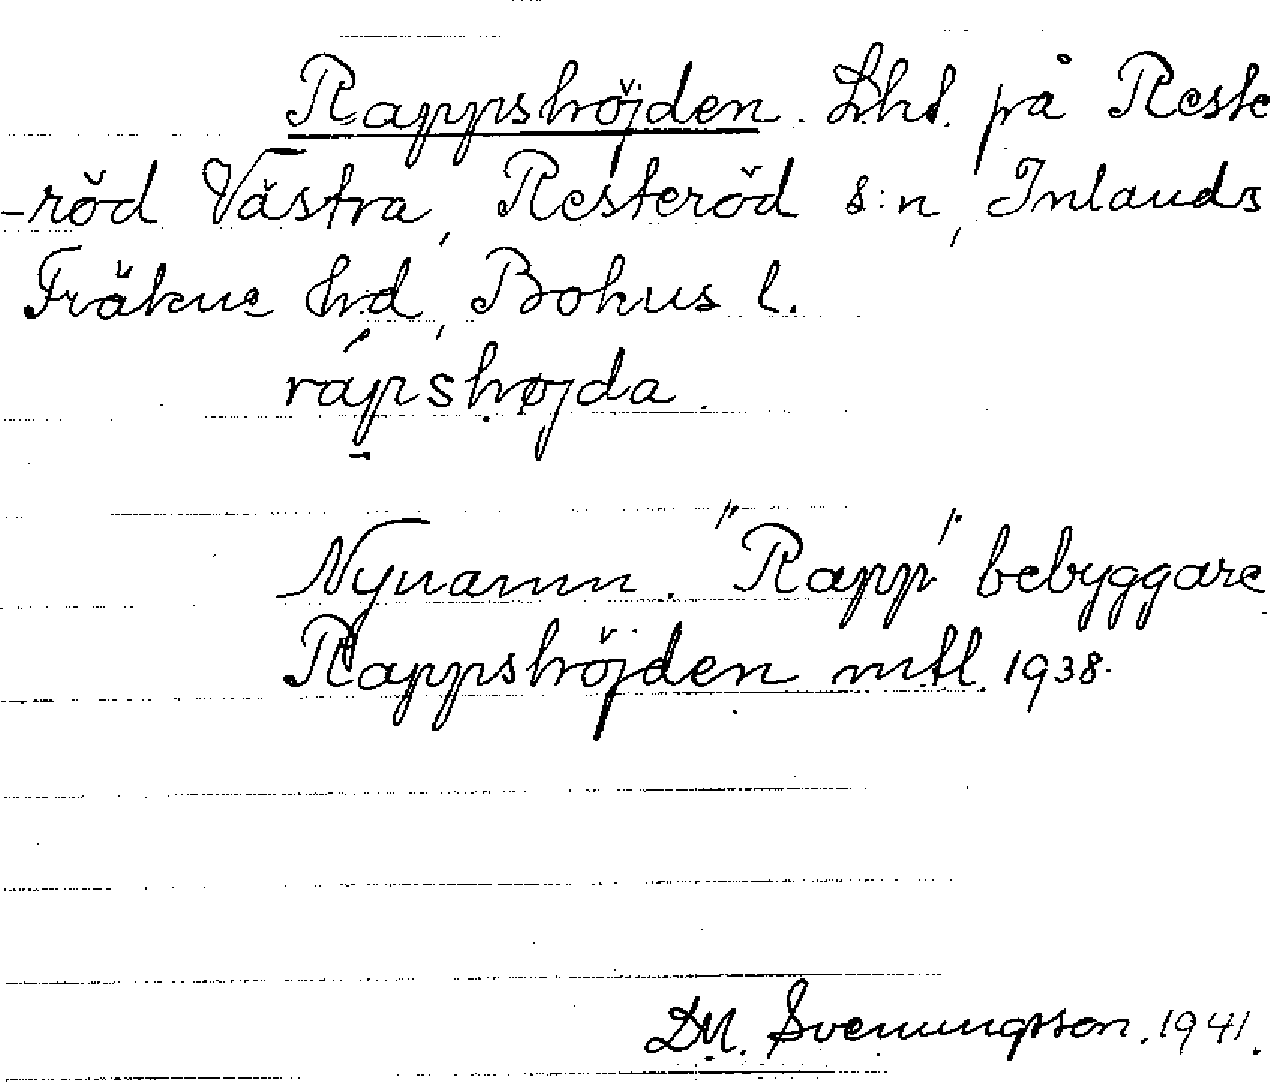 Rappshöjden. Lht. på Reste
-röd Västra, Resteröd s:n, Inlands
Fräkne hd, Bohus l.
rápshøjda.
Nynamn. "Rapp" bebyggare
Rappshöjden mtl. 1938.
D.M. Svenungsson. 1941.